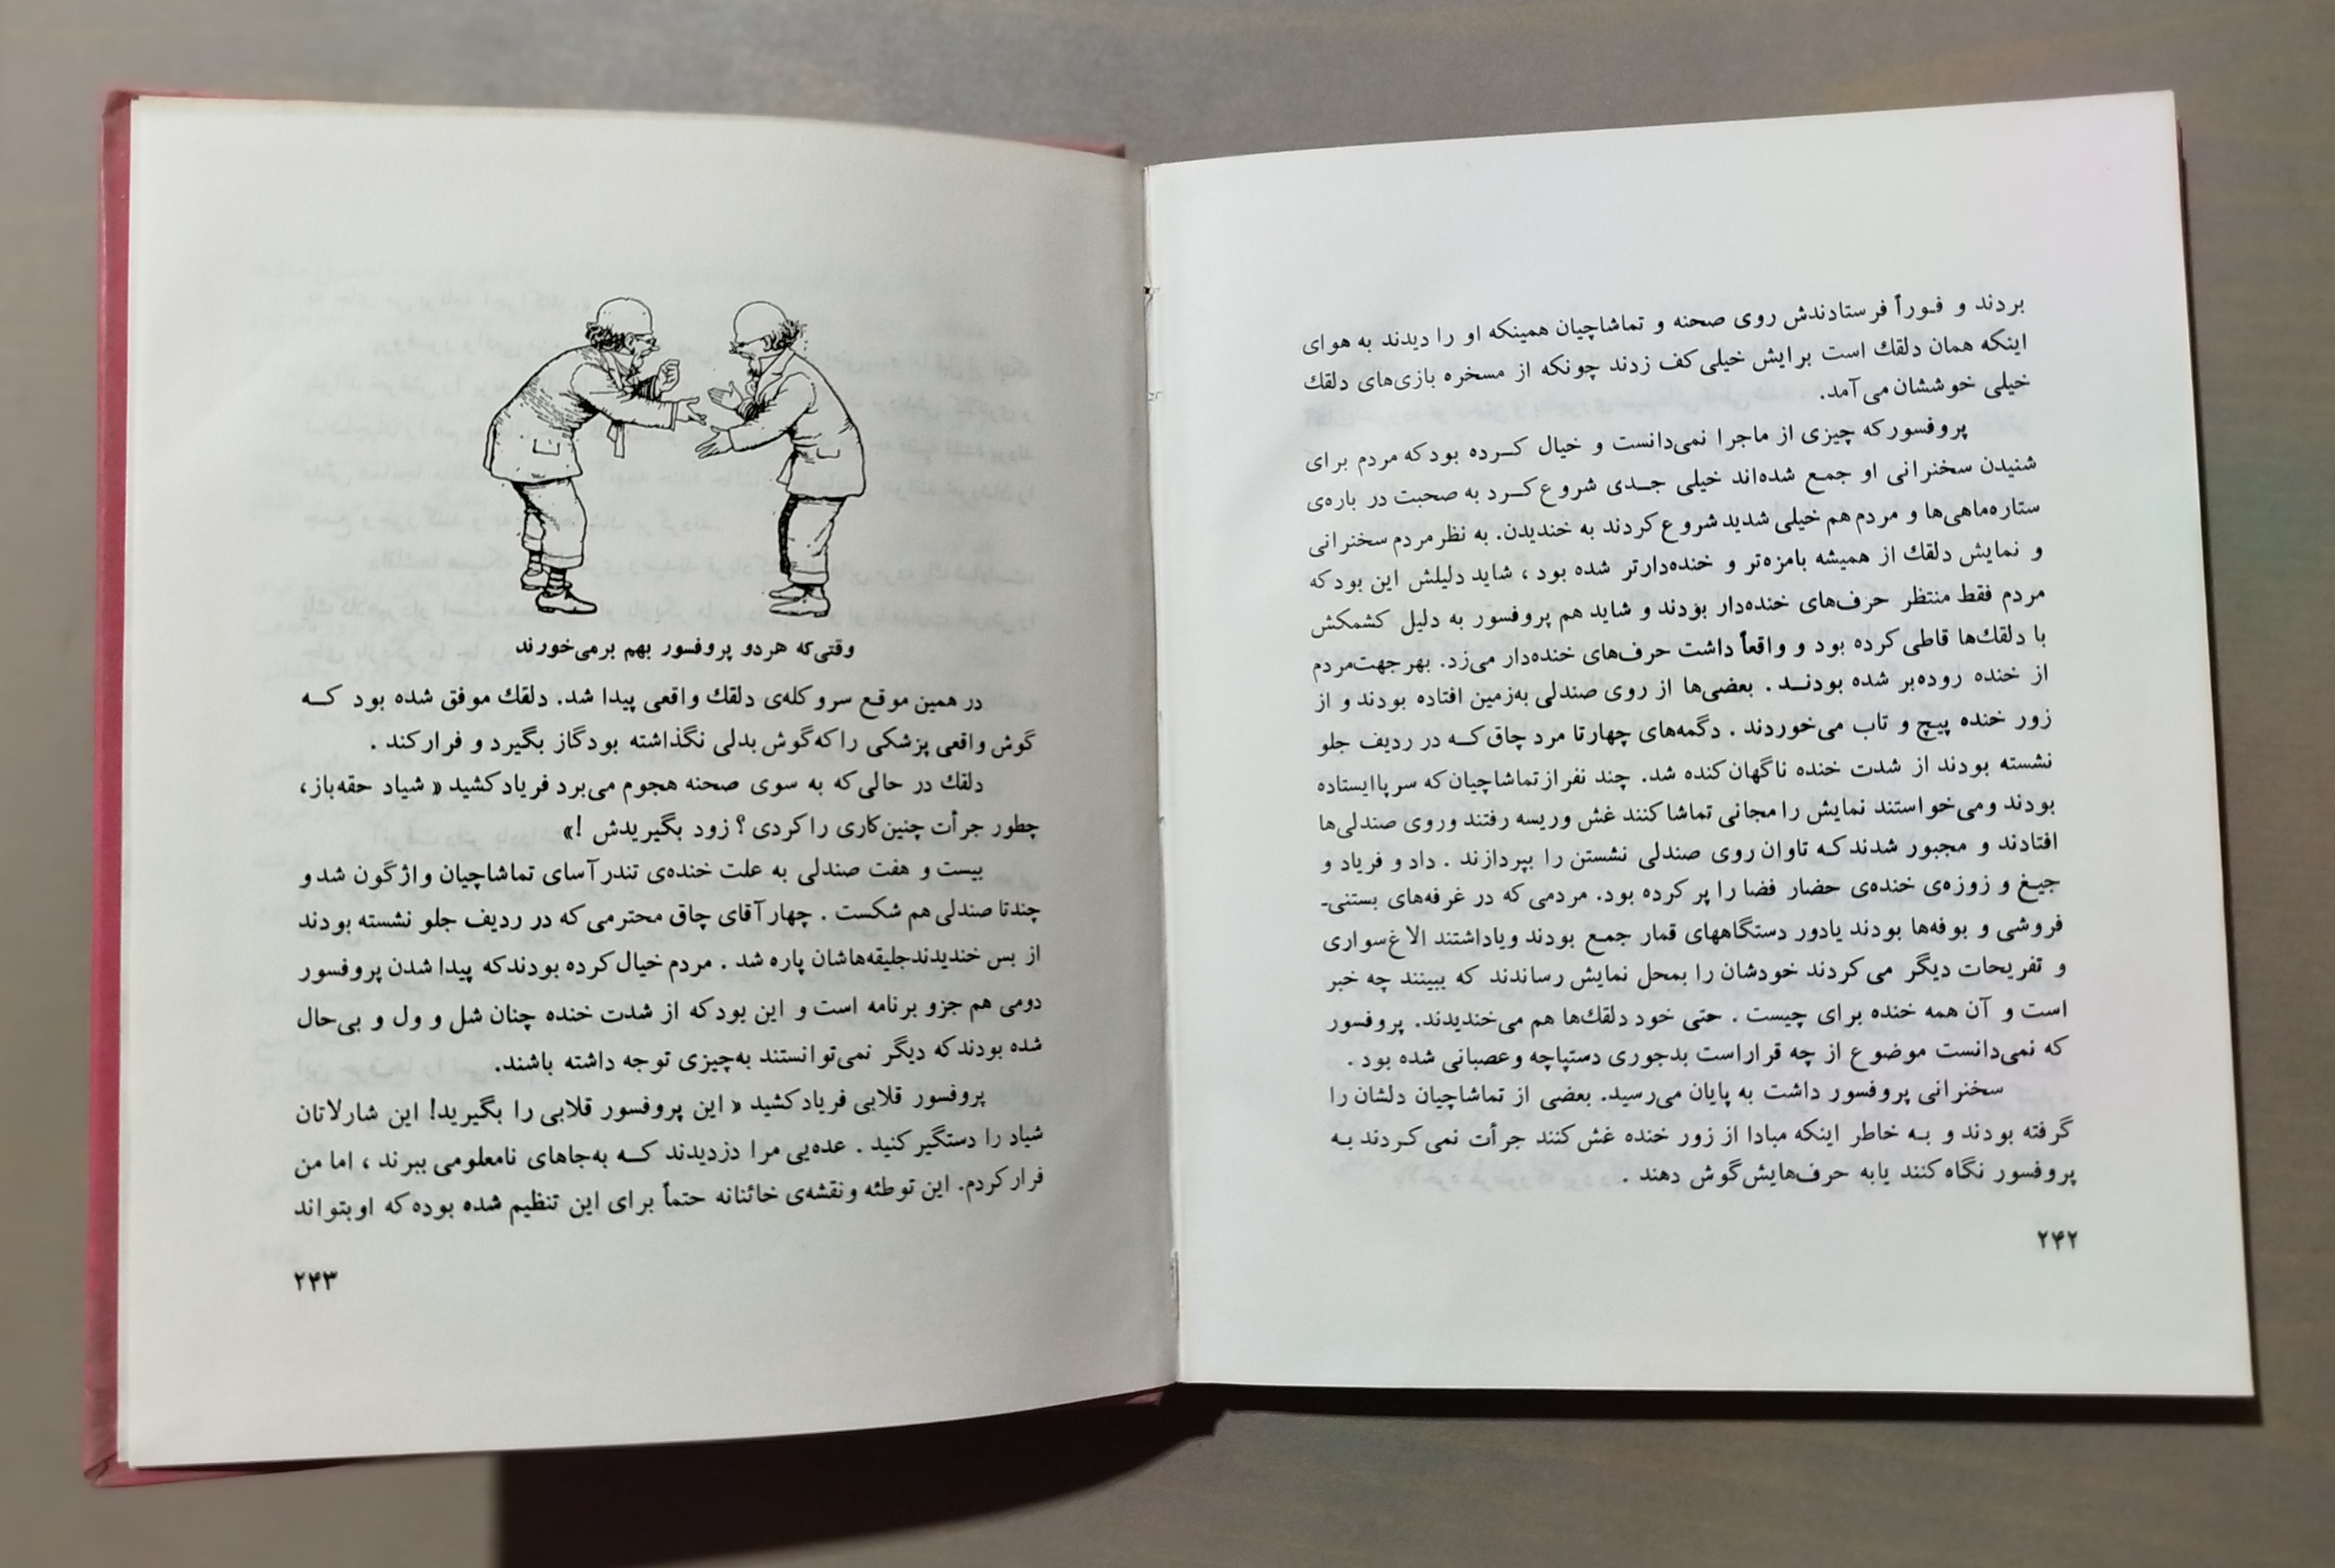 بردند و فـوراً فرستادندش روی صحنه و تماشاچیان همینکه او را دیدند به هوای
اینکه همان دلقك است برایش خیلی کف زدند چونکه از مسخره بازی‌های دلقك
خیلی خوششان می‌آمد.
پروفسورکه چیزی از ماجرا نمی‌دانست و خیال کـرده بودکه مردم برای
شنیدن سخنرانی او جمع شده‌اند خیلی جـدی شروع کـرد به صحبت در باره‌ی
ستاره‌ماهی‌ها و مردم هم خیلی شدید شروع کردند به خندیدن. به نظر مردم سخنرانی
و نمایش دلقك از همیشه بامزه‌تر و خنده‌دارتر شده بود ، شاید دلیلش این بودکه
مردم فقط منتظر حرف‌های خنده‌دار بودند و شاید هم پروفسور به دلیل کشمکش
با دلقك‌ها قاطی کرده بود و واقعاً داشت حرف‌های خنده‌دار می‌زد. بهر جهت‌مردم
از خنده روده‌بر شده بودنـد . بعضی‌ها از روی صندلی به‌زمین افتاده بودند و از
زور خنده پیچ و تاب می‌خوردند . دگمه‌های چهارتا مرد چاق‌کـه در ردیف جلو
نشسته بودند از شدت خنده ناگهان‌کنده شد. چند نفر از تماشاچیان‌که سرپاایستاده
بودند ومی‌خواستند نمایش را مجانی تماشا کنند غش وریسه رفتند وروی صندلی‌ها
افتادند و مجبور شدندکـه تاوان روی صندلی نشستن را بپردازند . داد و فریاد و
جیـغ و زوزه‌ی خنده‌ی حضار فضا را پر کرده بود. مردمی که در غرفه‌های بستنی‌ـ
فروشی و بوفه‌ها بودند یادور دستگاههای قمار جمـع بودند ویاداشتند الاغ‌سواری
و تفریحات دیگر می‌کردند خودشان را بمحل نمایش رساندند که ببینند چه خبر
است و آن همه خنده برای چیست . حتی خود دلقك‌ها هم می‌خندیدند. پروفسور
که نمی‌دانست موضوع از چه قراراست بدجوری دستپاچه وعصبانی شده بود .
سخنرانی پروفسور داشت به پایان می‌رسید. بعضی از تماشاچیان دلشان را
گرفته بودند و بـه خاطر اینکه مبادا از زور خنده غش‌کنند جرأت نمی‌کـردند بـه
پروفسور نگاه کنند یابه حرف‌هایش‌گوش دهند .
۲۴۲
وقتی‌که هردو پروفسور بهم برمی‌خورند
در همین موقـع سروکله‌ی دلقك واقعی پیدا شد. دلقك موفق شده بود کـه
گوش واقعی پزشکی راکه‌گوش بدلی نگذاشته بودگاز بگیرد و فرارکند .
دلقك در حالی‌که به سوی صحنه هجوم می‌برد فریادکشید « شیاد حقه‌باز،
چطور جرأت چنین‌کاری راکردی ؟ زود بگیریدش !»
بیست و هفت صندلی به علت خنده‌ی تندرآسای تماشاچیان واژگون شدو
چندتا صندلی هم شکست . چهارآقای چاق محترمی که در ردیف جلو نشسته بودند
از بس خندیدندجلیقه‌هاشان پاره شد . مردم خیال‌کرده بودندکه پیدا شدن پروفسور
دومی هم جزو برنامه است و این بودکه از شدت خنده چنان شل و ول و بی‌حال
شده بودندکه دیگر نمی‌توانستند به‌چیزی توجه داشته باشند.
پروفسور قلابی فریادکشید « این پروفسور قلابی را بگیرید! این شارلاتان
شیاد را دستگیرکنید . عده‌یی مرا دزدیدند کـه به‌جاهای نامعلومی ببرند ، اما من
فرارکردم. این توطئه ونقشه‌ی خائنانه حتماً برای این تنظیم شده بوده‌که اوبتواند
۲۴۳